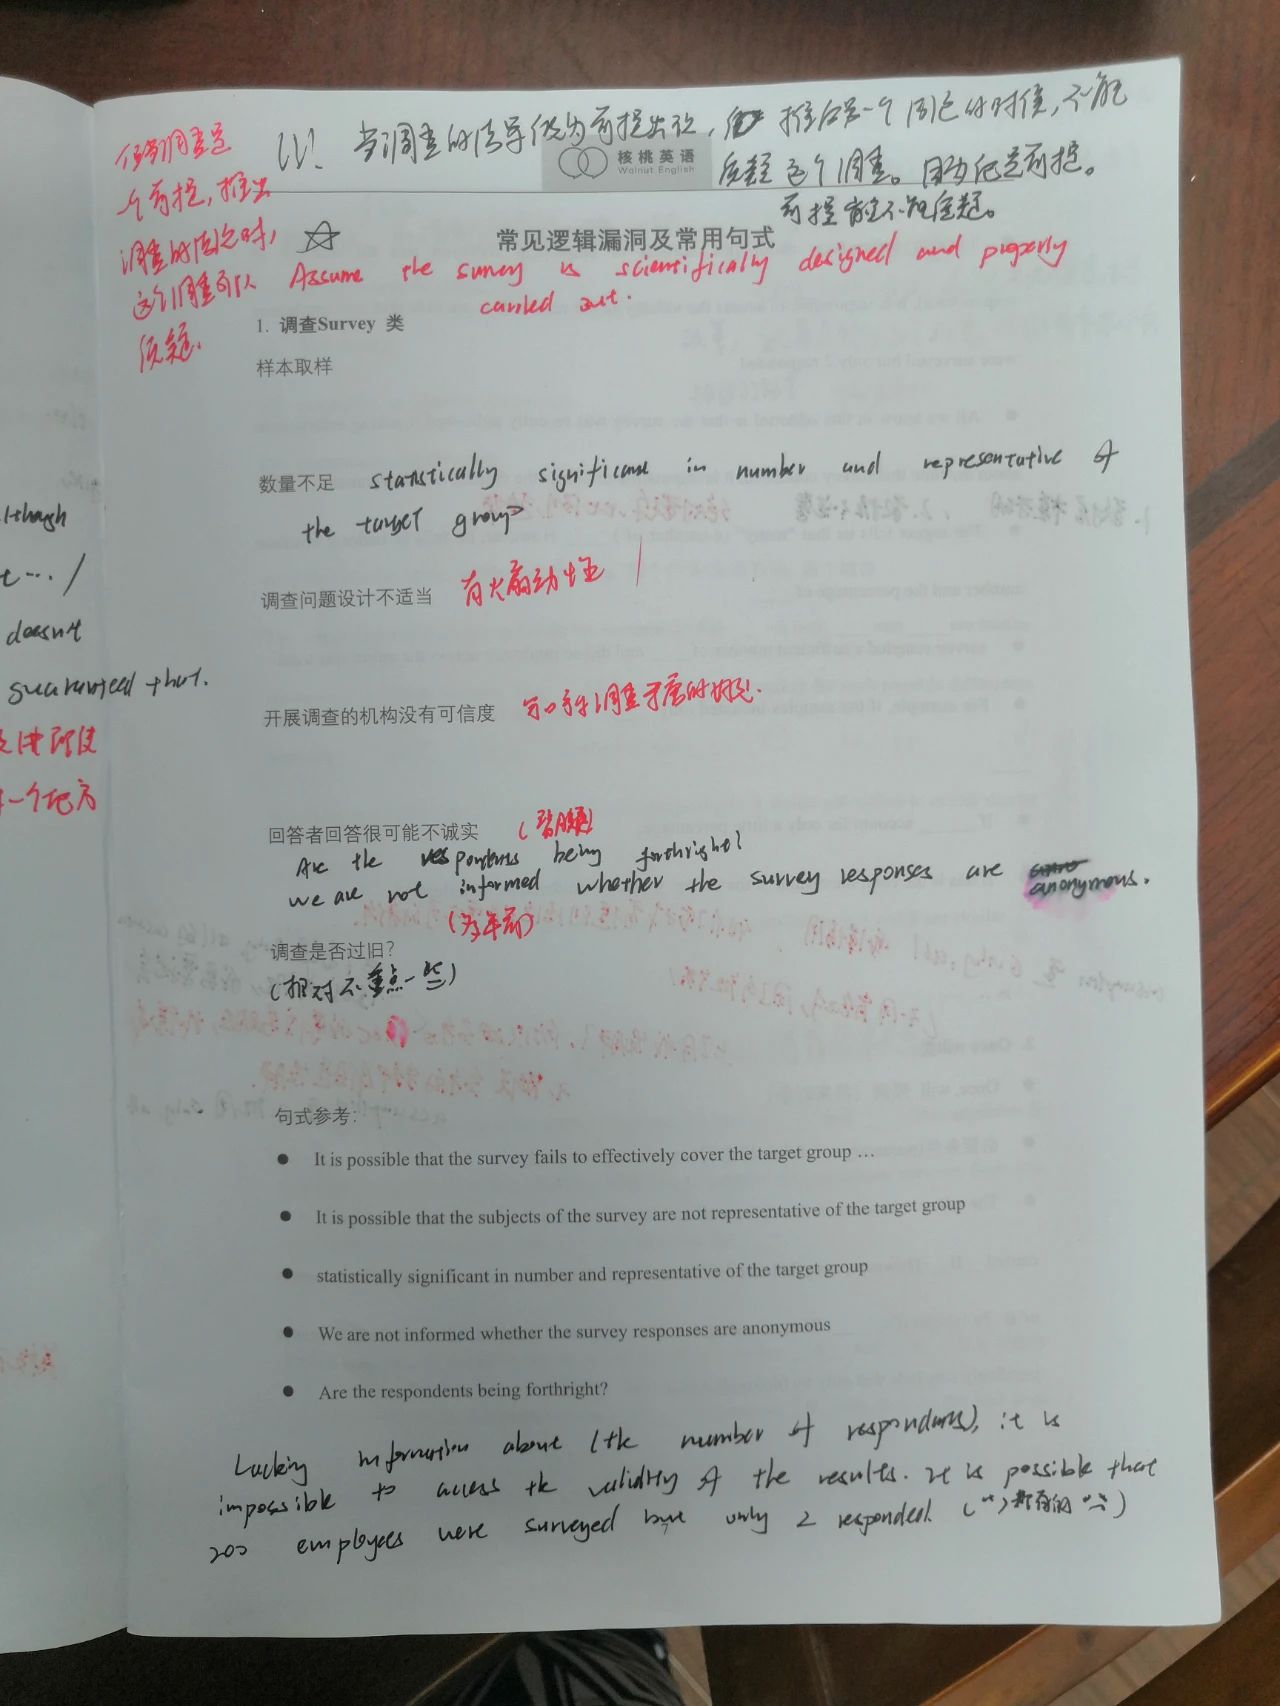 !!! 当调查的结果作为前提出现, 推后另一个的时候, 不能
质疑这个调查。因为它是前提。
前提不能质疑。
核桃英语
Walnut English
但当调查是
个前提, 推出
调查的结论时,
这个调查可以
质疑.
常见逻辑漏洞及常用句式
Assume the survey is scientifically designed and properly
carried out.
1. 调查Survey 类
样本取样
数量不足 statistically significant in number and representative of
the target group
调查问题设计不适当 有火扇动性
开展调查的机构没有可信度
回答者回答很可能不诚实
Are the respondents being forthright?
we are not informed whether the survey responses are anonymous.
调查是否过旧? (多年前)
(相对不重点一些)
句式参考:
● It is possible that the survey fails to effectively cover the target group …
● It is possible that the subjects of the survey are not representative of the target group
● statistically significant in number and representative of the target group
● We are not informed whether the survey responses are anonymous
● Are the respondents being forthright?
Lacking information about (the number of respondents), it is
impossible to access the validity of the results. It is possible that
200 employees were surveyed but only 2 responded.
lthough
t… /
doesn't
guaranteed that.
一个地方